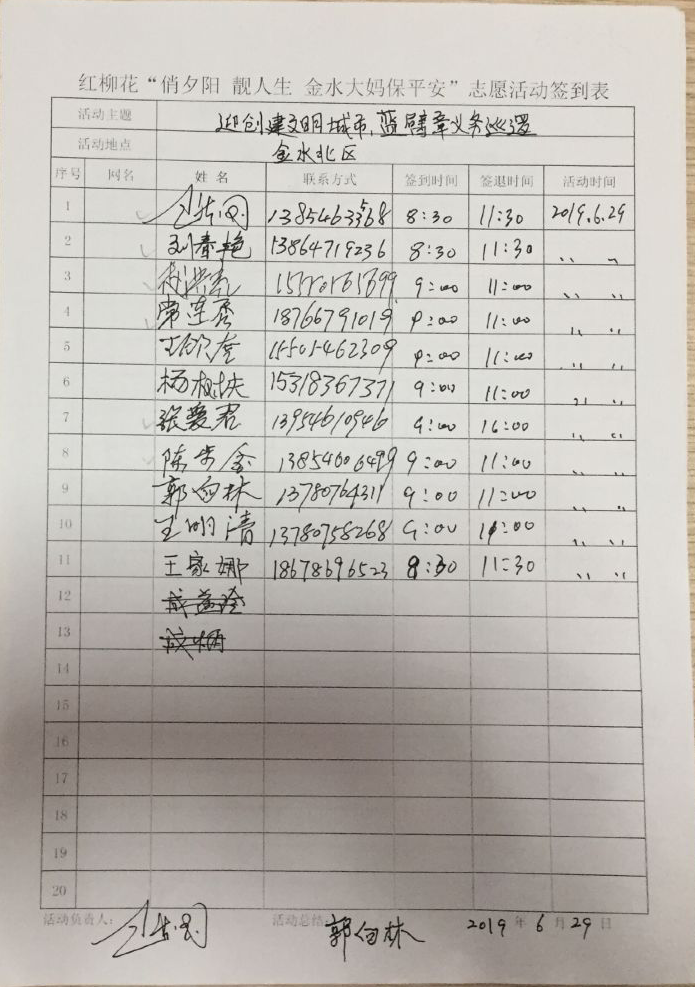 红柳花“俏夕阳 靓人生 金水大妈保平安”志愿活动签到表
活动主题 迎创建文明城市,蓝臂章义务巡逻
活动地点 金水北区
序号 网名 姓名 联系方式 签到时间 签退时间 活动时间
1 8:30 11:30 2019.6.29
2 刘春艳 13864719236 8:30 11:30 〃 〃
3 9:00 11:00 〃 〃
4 常连秀 18766791019 9:00 11:00 〃 〃
5 王欣奎 15505462309 9:00 11:00 〃 〃
6 杨 15318367371 9:00 11:00 〃 〃
7 张爱君 13954610946 9:00 16:00 〃 〃
8 陈 13854606499 9:00 11:00 〃 〃
9 郭向林 13780764311 9:00 11:00 〃 〃
10 王明清 13780758268 9:00 11:00 〃 〃
11 王家娜 18678696523 8:30 11:30 〃 〃
12
13
14
15
16
17
18
19
20
活动负责人: 活动总结: 郭向林 2019 年 6 月 29 日